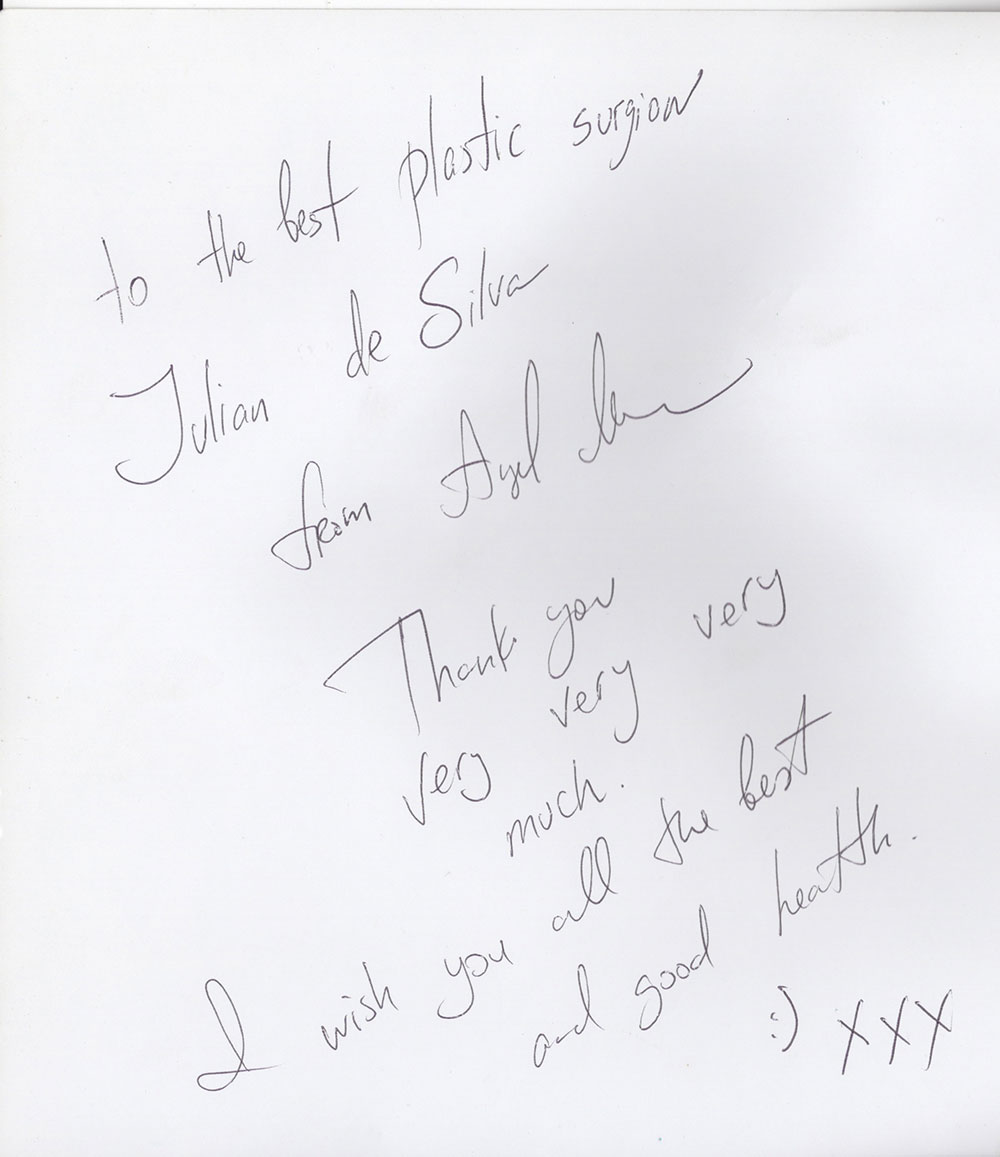 to the best plastic surgion
Julian de Silva
from
Thank you
very very very
much.
I wish you all the best
and good heatth.
:) XXX